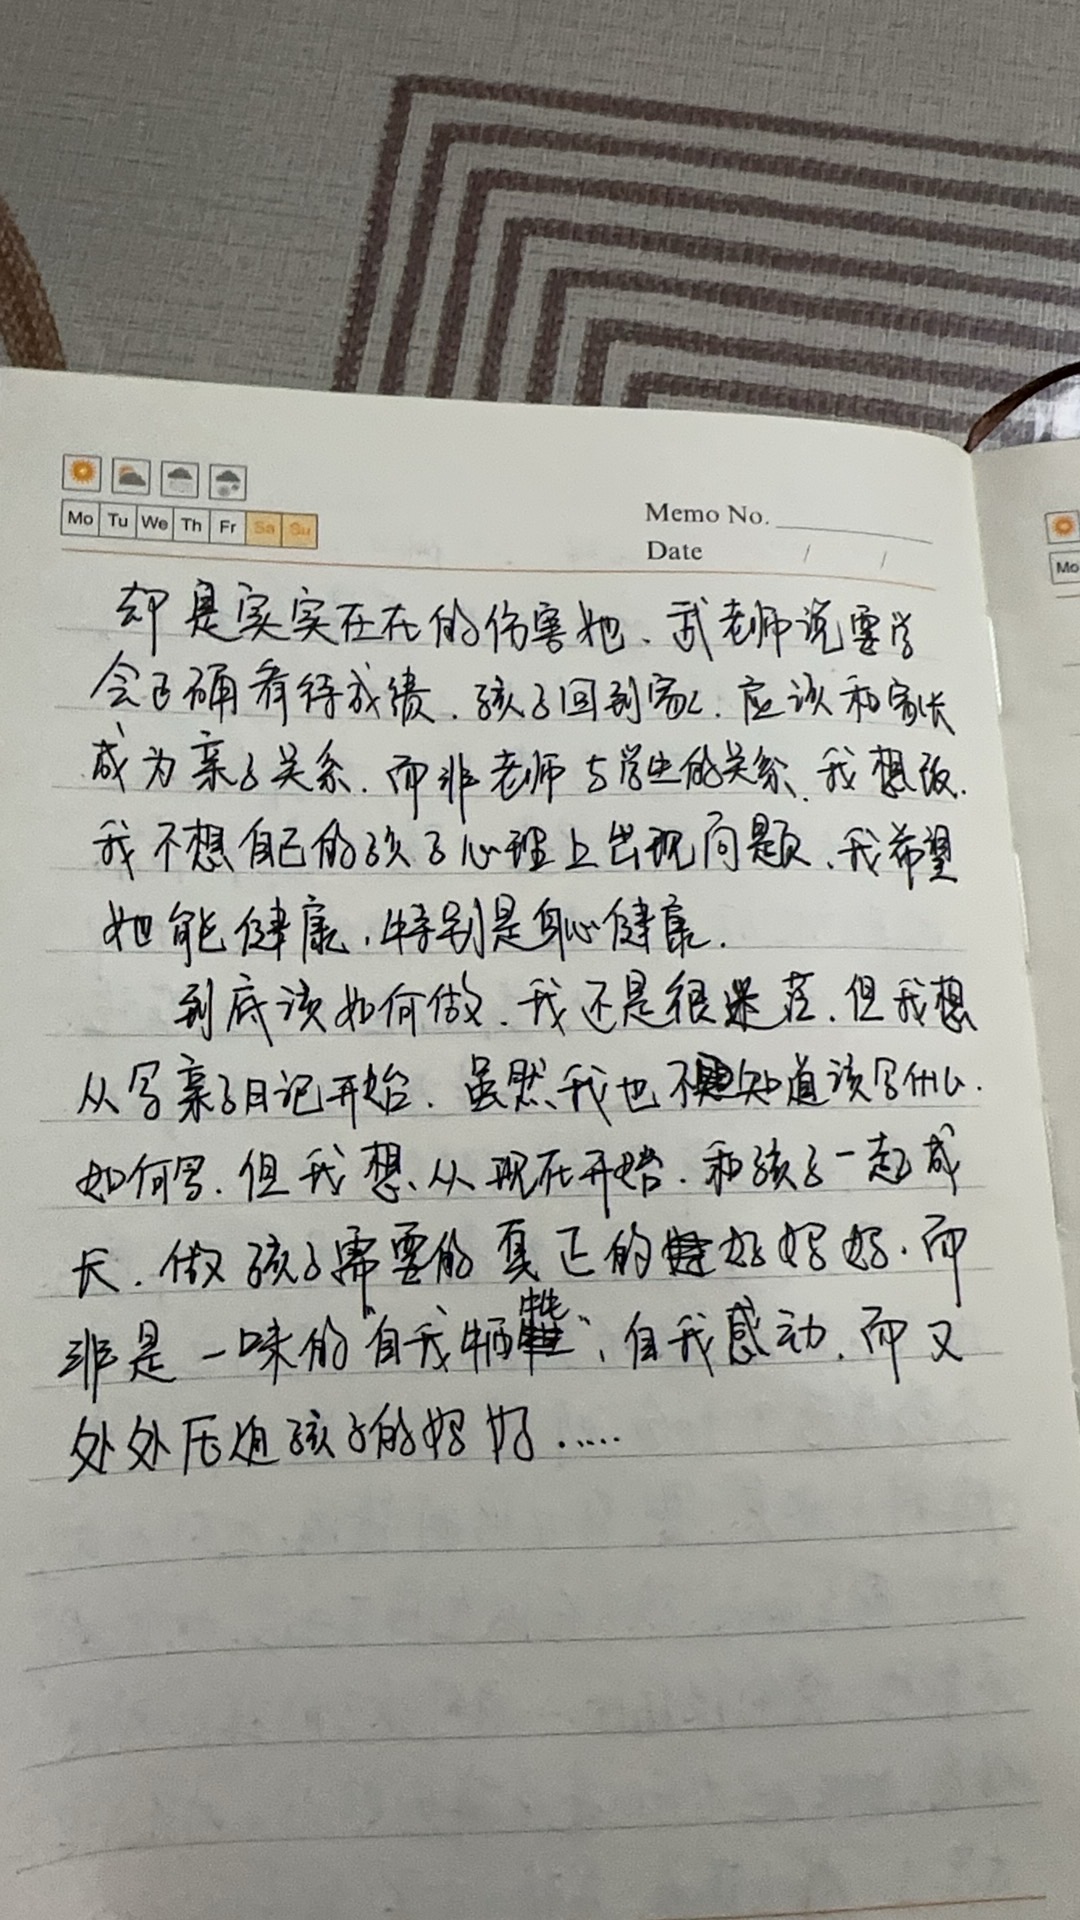 Mo Tu We Th Fr Sa Su
Memo No.
Date / /
却是实实在在的伤害她、武老师说要学
会正确看待成绩.孩子回到家、应该和家长
成为亲子关系.而非老师与学生的关系、我想改.
我不想自己的孩子心理上出现问题、我希望
她能健康,特别是身心健康.
到底该如何做、我还是很迷茫、但我想
从写亲子日记开始、虽然我也不知道该写什么.
如何写.但我想、从现在开始.和孩子一起成
长.做孩子需要的真正的好妈妈.而
非是一味的"自我牺牲"、自我感动.而又
处处压迫孩子的妈妈.....
Mo